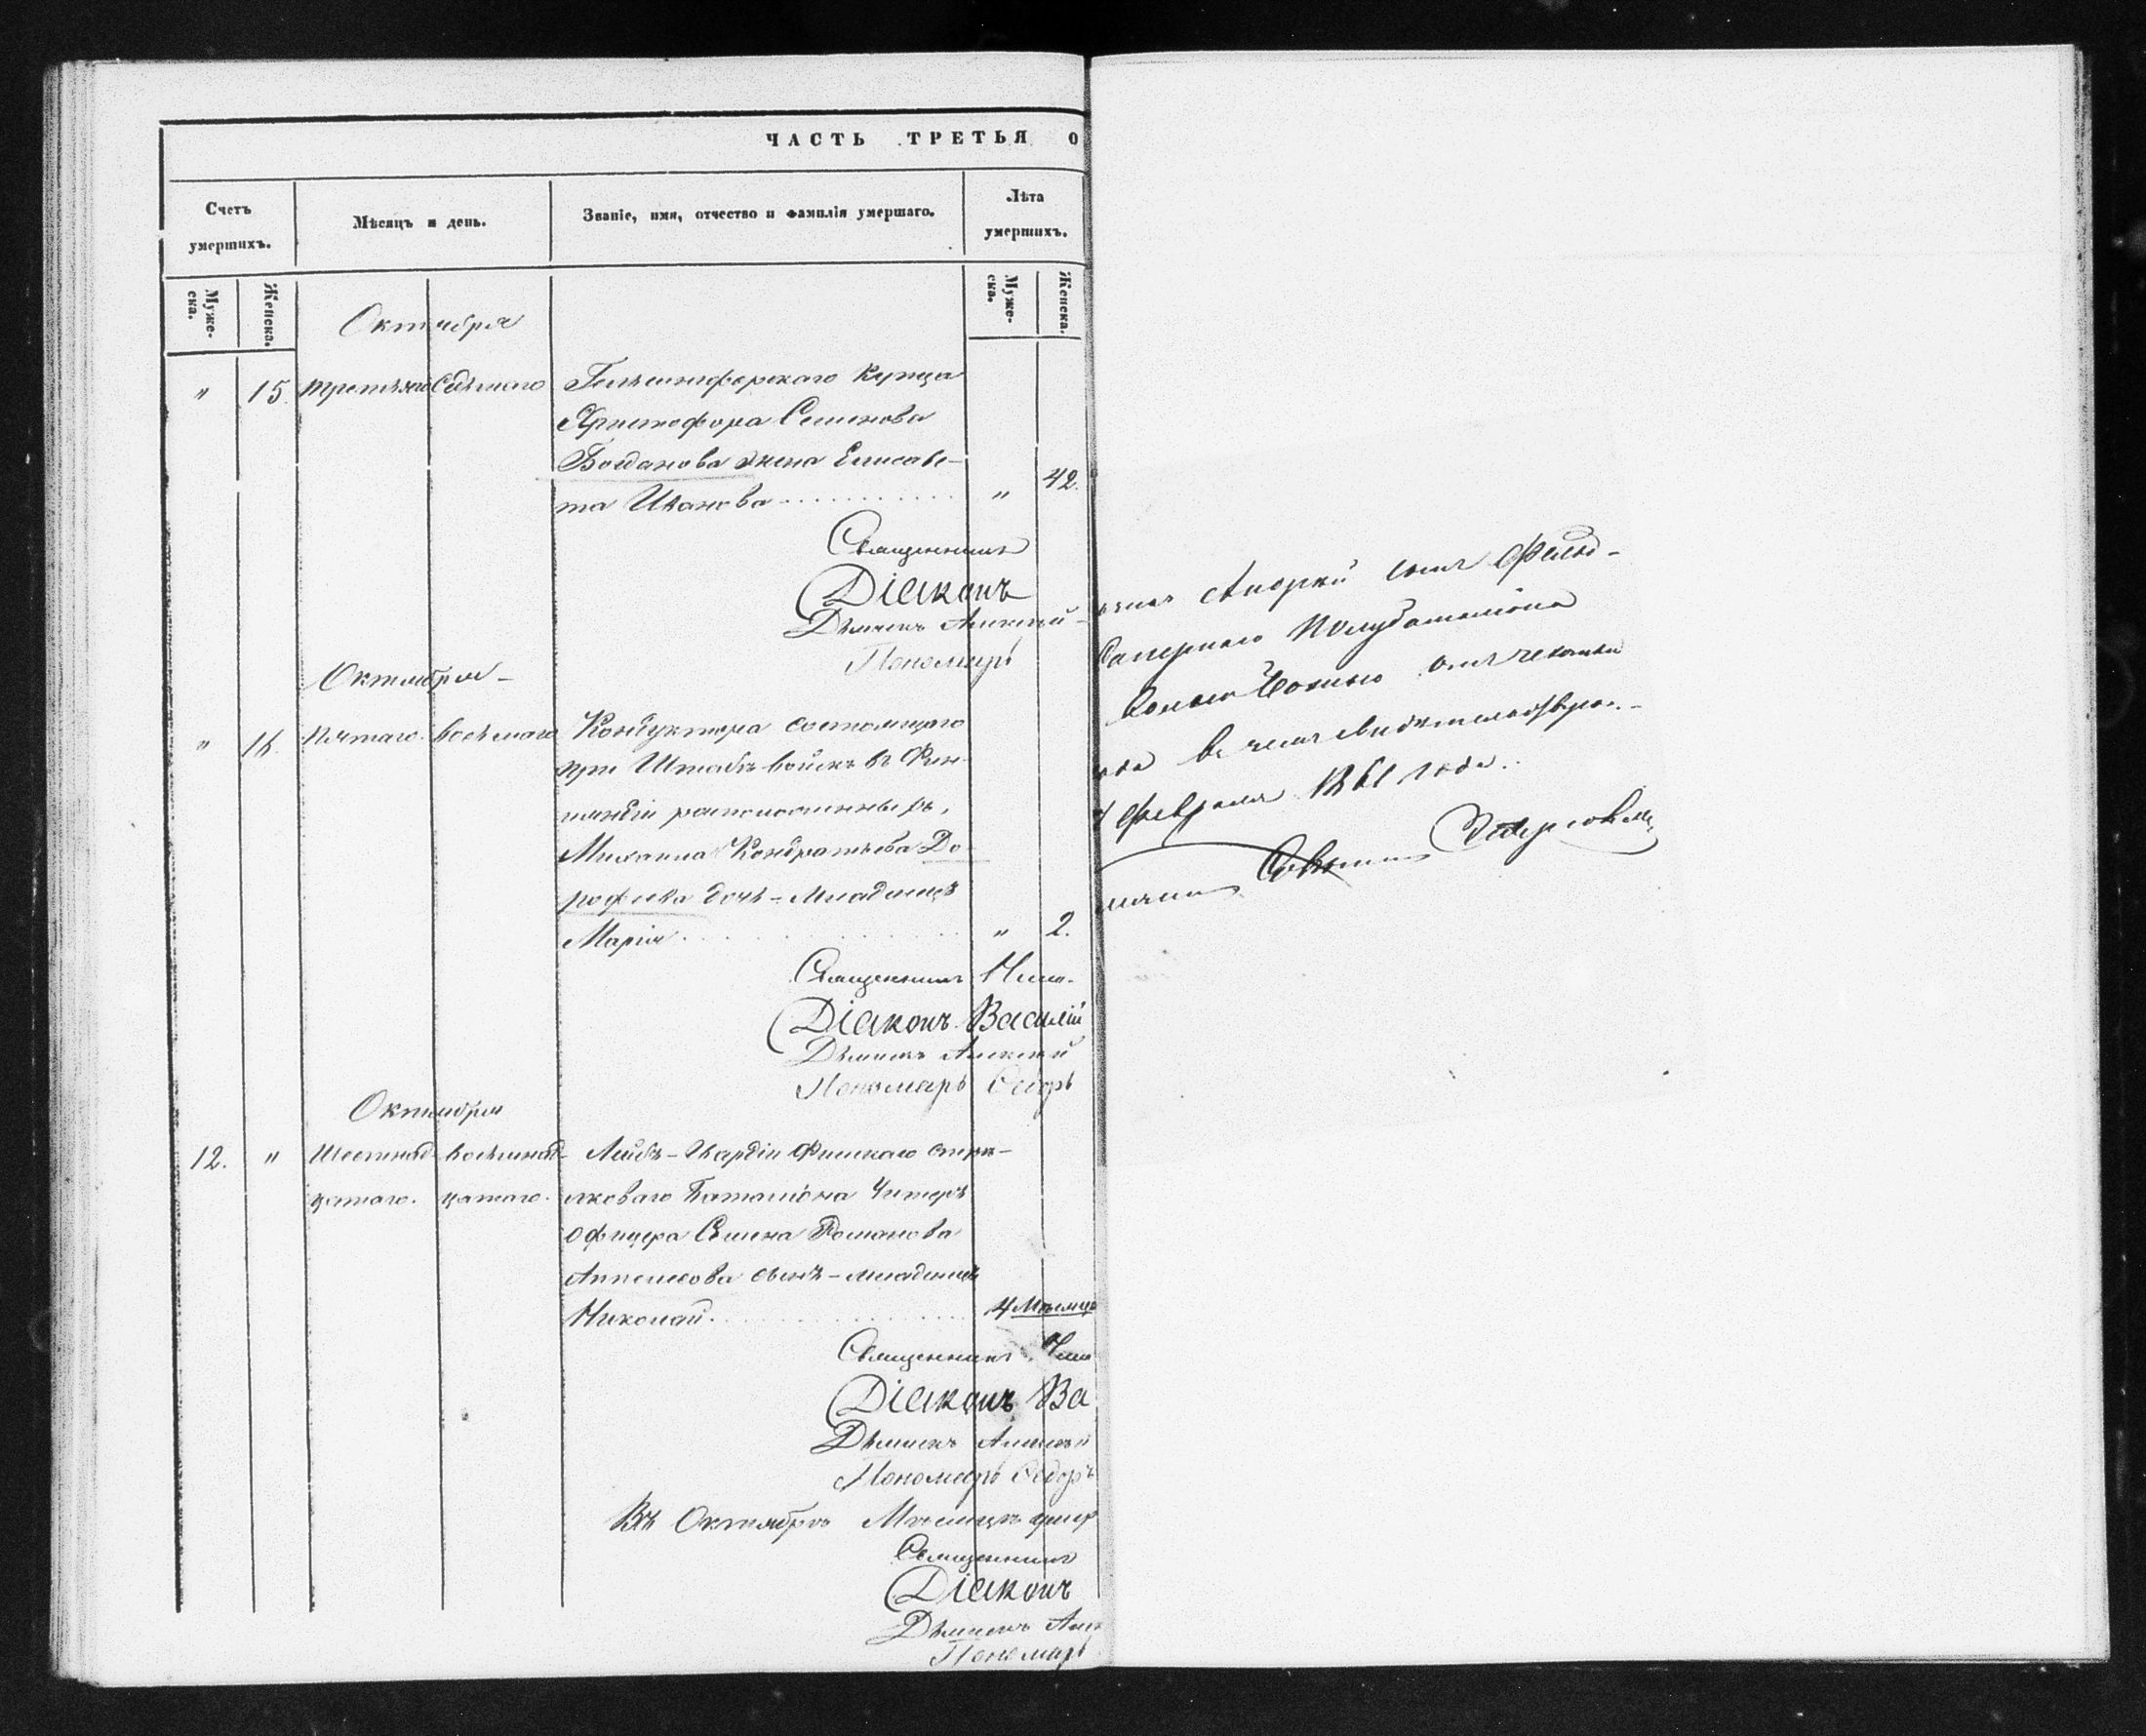 ЧАСТЬ ТРЕТЬЯ О
Счетъ умершихъ.
Мѣсяцъ и день.
Званіе, имя, отчество и фамилія умершаго.
Лѣта умершихъ.
Муже-ска.
Женска.
Муже-ска.
Женска.
Октября
" 15. Третьяго Седьмаго Гельсингфорскаго Купца
Христофора Семенова
Богданова жена Елисаве-
та Иванова " 42.
Священникъ
Діаконъ
Дьячекъ Алексѣй
Пономарь
Октября
" 16. Пятаго восьмаго Кондуктора состоящаго
при Штабѣ войскъ въ Фин-
ляндіи расположенныхъ,
Михаила Кондратьева До
рофеева дочь-младенецъ
Марія " 2.
Священникъ
Діаконъ Василій
Дьячекъ Алексѣй
Пономарь Ѳедоръ
Октября
12. " Шестнад- восемнад- Лейбъ-Гвардіи Финскаго стрѣ-
цатаго. цатаго. лковаго Баталіона Унтеръ
офицера Семена Романова
сынъ-младенецъ
Николай 4 Мѣсяца
Священникъ
Діаконъ Ва
Дьячекъ Алексѣй
Пономарь Ѳедоръ
Въ Октябрѣ Мѣсяцѣ умер
Священникъ
Діаконъ
Дьячекъ Але
Пономарь
сынъ Фельд-
Сапернаго Полубаталіона
въ чемъ свидѣтельствую
Февраля 1861 года.